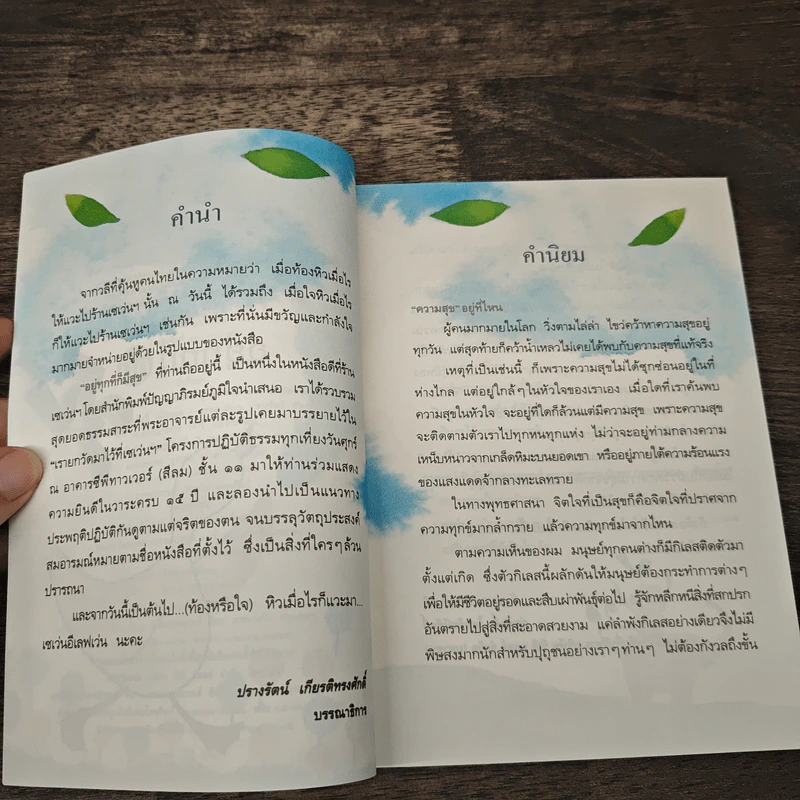 คำนำ
จากวลีที่คุ้นหูคนไทยในความหมายว่า เมื่อท้องหิวเมื่อไร
ให้แวะไปร้านเซเว่นฯ นั้น ณ วันนี้ ได้รวมถึง เมื่อใจหิวเมื่อไร
ก็ให้แวะไปร้านเซเว่นฯ เช่นกัน เพราะที่นั่นมีขวัญและกำลังใจ
มากมายจำหน่ายอยู่ด้วยในรูปแบบของหนังสือ
"อยู่ทุกที่ก็มีสุข" ที่ท่านถืออยู่นี้ เป็นหนึ่งในหนังสือดีที่ร้าน
เซเว่นฯ โดยสำนักพิมพ์ปัญญาภิรมย์ภูมิใจนำเสนอ เราได้รวบรวม
สุดยอดธรรมสาระที่พระอาจารย์แต่ละรูปเคยมาบรรยายไว้ใน
"เรายกวัดมาไว้ที่เซเว่นฯ" โครงการปฏิบัติธรรมทุกเที่ยงวันศุกร์
ณ อาคารซีพีทาวเวอร์ (สีลม) ชั้น ๑๑ มาให้ท่านร่วมแสดง
ความยินดีในวาระครบ ๑๕ ปี และลองนำไปเป็นแนวทาง
ประพฤติปฏิบัติกันดูตามแต่จริตของตน จนบรรลุวัตถุประสงค์
สมอารมณ์หมายตามชื่อหนังสือที่ตั้งไว้ ซึ่งเป็นสิ่งที่ใครๆ ล้วน
ปรารถนา
และจากวันนี้เป็นต้นไป...(ท้องหรือใจ) หิวเมื่อไรก็แวะมา...
เซเว่นอีเลฟเว่น นะคะ
ปรางรัตน์ เกียรติทรงศักดิ์
บรรณาธิการ
คำนิยม
"ความสุข" อยู่ที่ไหน
ผู้คนมากมายในโลก วิ่งตามไล่ล่า ไขว่คว้าหาความสุขอยู่
ทุกวัน แต่สุดท้ายก็คว้าน้ำเหลวไม่เคยได้พบกับความสุขที่แท้จริง
เหตุที่เป็นเช่นนี้ ก็เพราะความสุขไม่ได้ซุกซ่อนอยู่ในที่
ห่างไกล แต่อยู่ใกล้ๆ ในหัวใจของเราเอง เมื่อใดที่เราค้นพบ
ความสุขในหัวใจ จะอยู่ที่ใดก็ล้วนแต่มีความสุข เพราะความสุข
จะติดตามตัวเราไปทุกหนทุกแห่ง ไม่ว่าจะอยู่ท่ามกลางความ
เหน็บหนาวจากเกล็ดหิมะบนยอดเขา หรืออยู่ภายใต้ความร้อนแรง
ของแสงแดดจ้ากลางทะเลทราย
ในทางพุทธศาสนา จิตใจที่เป็นสุขก็คือจิตใจที่ปราศจาก
ความทุกข์มากล้ำกราย แล้วความทุกข์มาจากไหน
ตามความเห็นของผม มนุษย์ทุกคนต่างก็มีกิเลสติดตัวมา
ตั้งแต่เกิด ซึ่งตัวกิเลสนี้ผลักดันให้มนุษย์ต้องกระทำการต่างๆ
เพื่อให้มีชีวิตอยู่รอดและสืบเผ่าพันธุ์ต่อไป รู้จักหลีกหนีสิ่งที่สกปรก
อันตรายไปสู่สิ่งที่สะอาดสวยงาม แค่ลำพังกิเลสอย่างเดียวจึงไม่มี
พิษสงมากนักสำหรับปุถุชนอย่างเราๆ ท่านๆ ไม่ต้องกังวลถึงขั้น